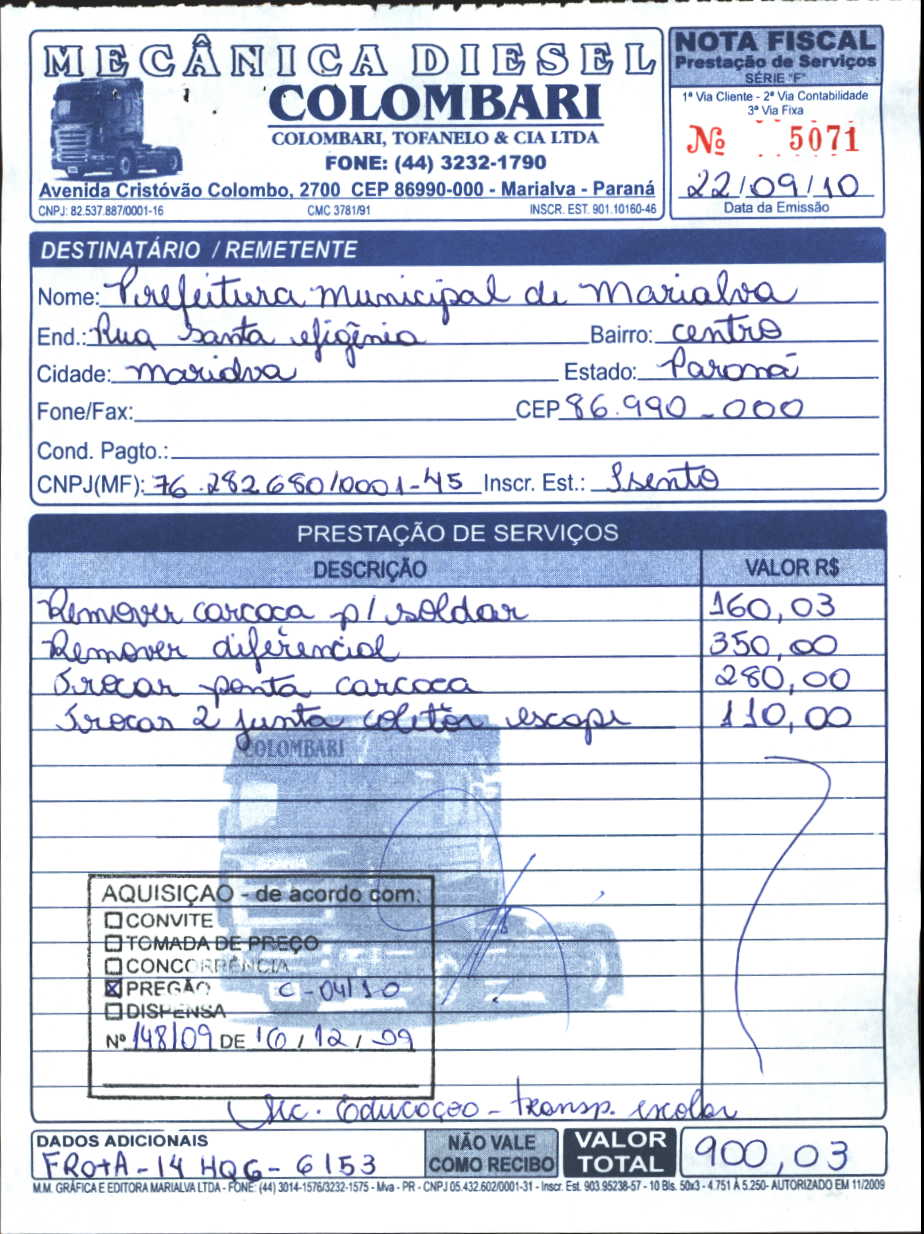 MECÂNICA DIESEL
COLOMBARI
COLOMBARI, TOFANELO & CIA LTDA
FONE: (44) 3232-1790
Avenida Cristóvão Colombo, 2700 CEP 86990-000 - Marialva - Paraná
CNPJ: 82.537.887/0001-16 CMC 3781/91 INSCR. EST. 901.10160-46
NOTA FISCAL
Prestação de Serviços
SÉRIE "F"
1ª Via Cliente - 2ª Via Contabilidade
3ª Via Fixa
Nº 5071
22/09/10
Data da Emissão
DESTINATÁRIO / REMETENTE
Nome: Prefeitura Municipal de Marialva
End.: Rua Santa efigênia Bairro: centro
Cidade: Marialva Estado: Paraná
Fone/Fax: CEP 86.990-000
Cond. Pagto.:
CNPJ(MF): 76.282.680/0001-45 Inscr. Est.: Isento
PRESTAÇÃO DE SERVIÇOS
DESCRIÇÃO VALOR R$
Remover carcoca p/ soldar 160,03
Remover diferencial 350,00
Trocar ponta carcoca 280,00
Trocar 2 junta coletor escape 110,00
COLOMBARI
AQUISIÇAO - de acordo com:
CONVITE
TOMADA DE PREÇO
CONCORRÊNCIA
PREGÃO C-04/10
DISPENSA
Nº 148/09 DE 16/12/09
Sec. Educação - transp. escolar
DADOS ADICIONAIS
FROTA - 14 HQG - 6153
NÃO VALE
COMO RECIBO
VALOR
TOTAL
900,03
M.M. GRÁFICA E EDITORA MARIALVA LTDA - FONE: (44) 3014-1576/3232-1575 - Mva - PR - CNPJ 05.432.602/0001-31 - Inscr. Est. 903.95238-57 - 10 Bls. 50x3 - 4.751 À 5.250- AUTORIZADO EM 11/2009